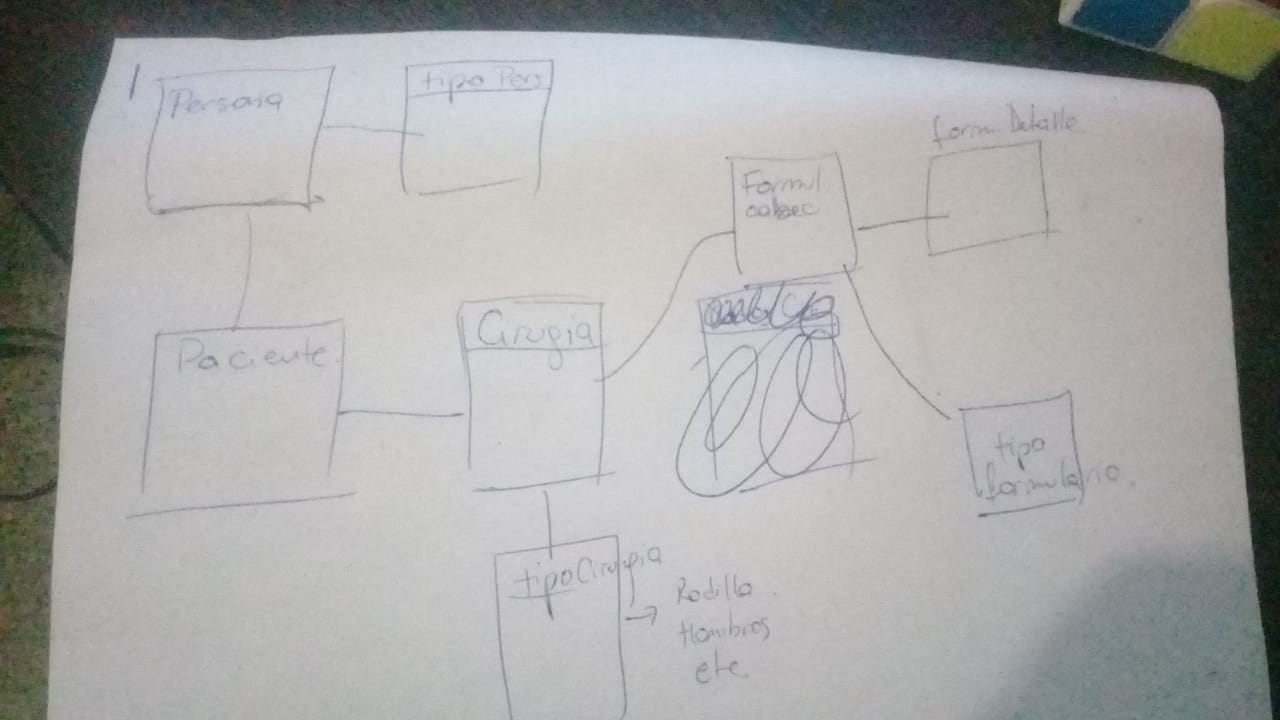 1
Persona
tipo Pers
form Detalle
Formul
cabec
Paciente
Cirugia
tipo
formulario.
tipo Cirugia
→ Rodilla
Hombros
etc